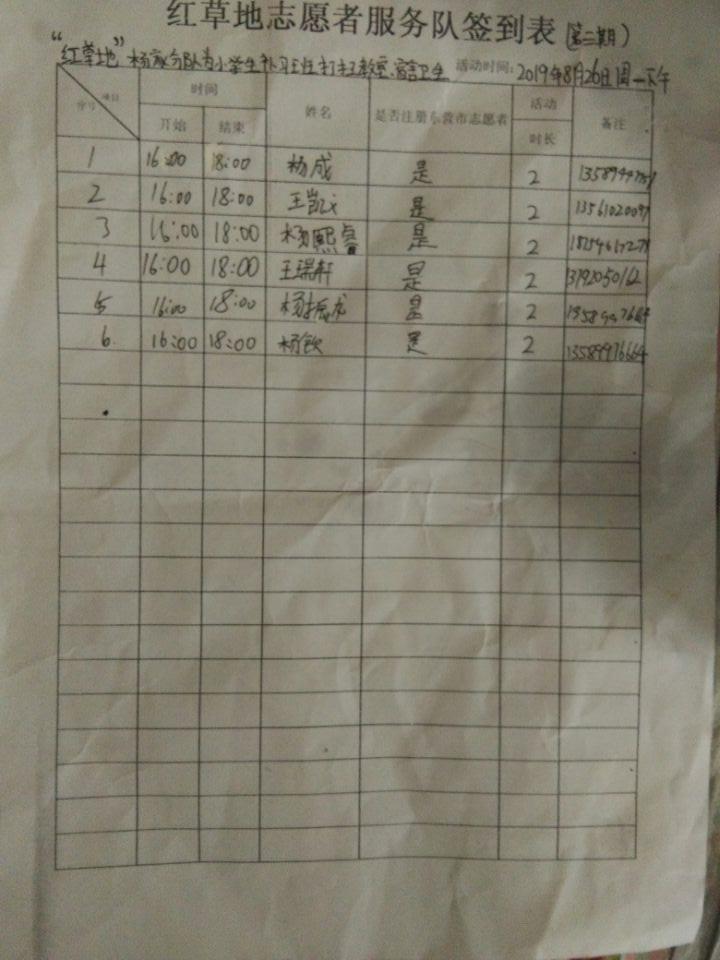 红草地志愿者服务队签到表(第二期)
“红草地”杨家分队为小学生补习班打扫教室、宿舍卫生 活动时间:2019年8月26日周一下午
序号 项目 时间 姓名 是否注册东营市志愿者 活动 备注
开始 结束 时长
1 16:00 18:00 杨成 是 2
2 16:00 18:00 王凯 是 2
3 16:00 18:00 杨熙睿 是 2
4 16:00 18:00 王瑞轩 是 2
5 16:00 18:00 杨振龙 是 2
6. 16:00 18:00 杨钦 是 2 13589976664